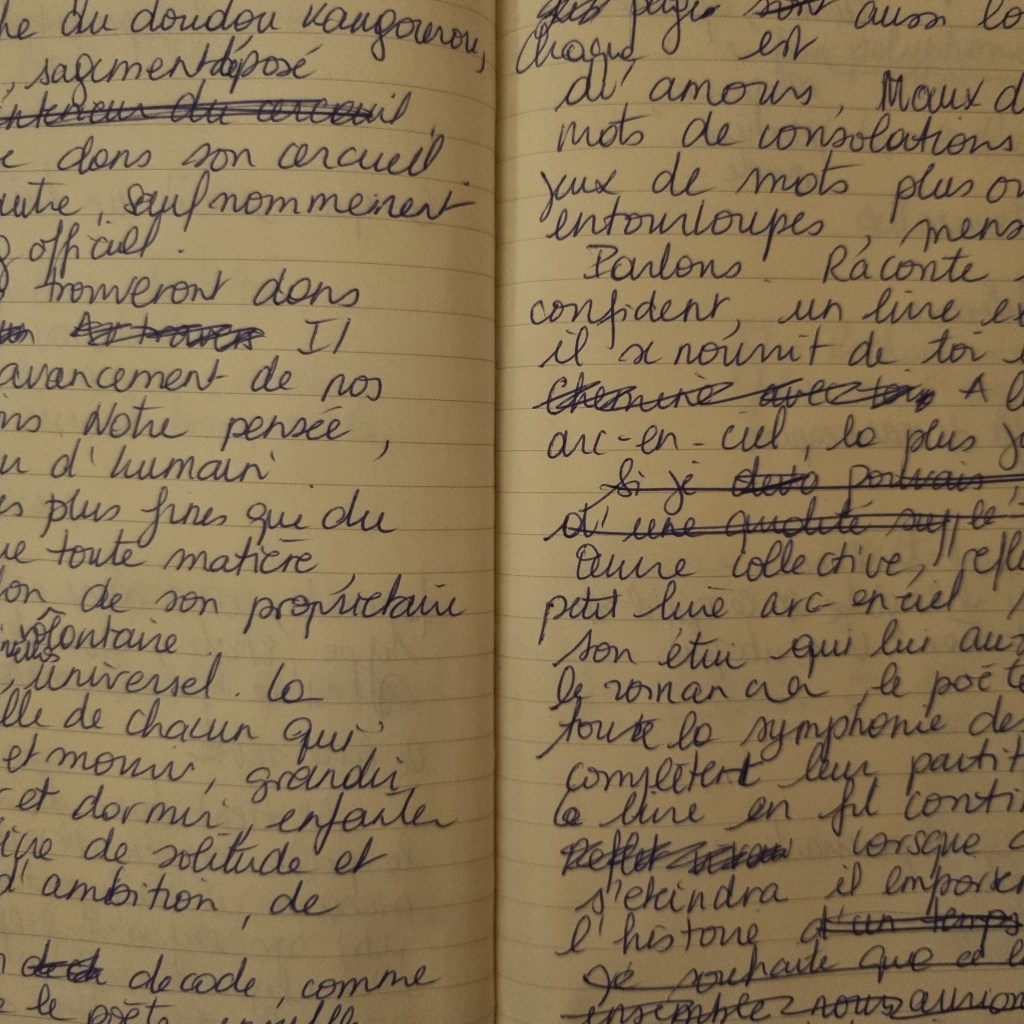 he du doudou kangourou,
, sagement déposé
intérieur du cercueil,
e dans son cercueil
autre, sauf nommément
officiel.
trouveront dans
Il
avancement de nos
ns Notre pensée,
u d'humain
es plus fines que du
ue toute matière
on de son propriétaire
volontaire
, universel. La
lle de chacun qui
et mourir, grandir,
r et dormir, enfanter
ique de solitude et
d'ambition, de
decode, comme
e le poète
page sont aussi lo
Chaque est
d'amours, Maux d
mots de consolations
jeux de mots plus ou
entourloupes, mens
Parlons. Raconte
confident, un livre ex
il se nourrit de toi
Chemine avec toi, A l
arc-en-ciel, la plus j
Si je pouvais
d'une qualité supplé
Œuvre collective, refle
petit livre arc en ciel
son étui qui lui au
le romancier, le poète
toute la symphonie de
complètent leur partit
Le livre en fil conti
Reflet lorsque
s'éteindra il emporter
l'histoire d'un temps
Je souhaite que ce l
ensemble nous aurion